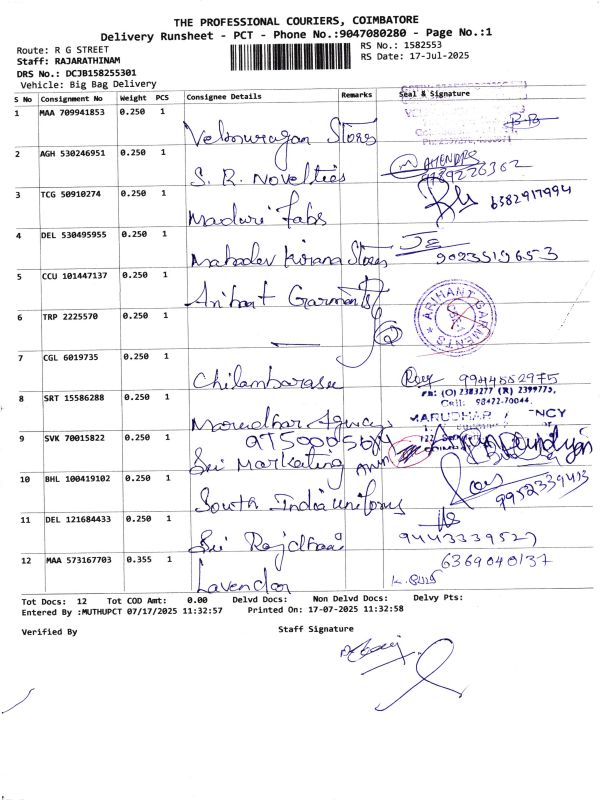 THE PROFESSIONAL COURIERS, COIMBATORE
Delivery Runsheet - PCT - Phone No.:9047080280 - Page No.:1
Route: R G STREET
RS No.: 1582553
Staff: RAJARATHINAM
RS Date: 17-Jul-2025
DRS No.: DCJB158255301
Vehicle: Big Bag Delivery
S No Consignment No Weight PCS Consignee Details Remarks Seal & Signature
1 MAA 709941853 0.250 1
Velmurugan Stores
2 AGH 530246951 0.250 1
S. R. Novelties
3 TCG 50910274 0.250 1
Maduri Fabs 6382917994
4 DEL 530495955 0.250 1
Mahadev Kirana Stores 9023519653
5 CCU 101447137 0.250 1
Arihant Garments
ARIHANT GARMENTS
6 TRP 2225570 0.250 1
7 CGL 6019735 0.250 1
Chilambarasu 9944852975
PH: (O) 2383277 (R) 2399775,
Cell: 98422-70044,
8 SRT 15586288 0.250 1
Marudhar Agencies
MARUDHAR
9 SVK 70015822 0.250 1
Sri Marketing
10 BHL 100419102 0.250 1
South India Uniforms 9952339413
11 DEL 121684433 0.250 1
Sri Rajdhani 9443339527
12 MAA 573167703 0.355 1
6369040137
Lavender
Tot Docs: 12 Tot COD Amt: 0.00 Delvd Docs: Non Delvd Docs: Delvy Pts:
Entered By :MUTHUPCT 07/17/2025 11:32:57 Printed On: 17-07-2025 11:32:58
Verified By Staff Signature